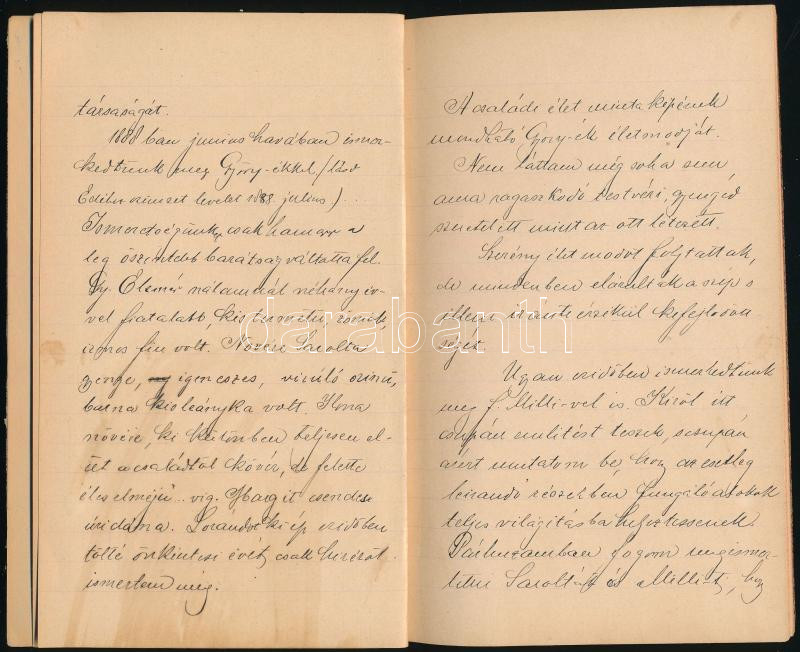 társaságát.
1888 ban junius havában ismer-
kedtünk meg Györy-ékkel /lásd
levelet 1888. julius.)
Ismeretségünk csak hamar a
leg őszintébb barátság váltotta fel.
Gy. Elemér nálamnál néhány év-
vel fiatalabb, kis termetü, zömök,
izmos fiu volt. Növére Sarolta
gyenge, igen eszes, viruló szinü,
barna kis leányka volt. Ilona
növére, ki különben teljesen el-
üt a családtól kövér, de felette
éles elméjü víg. Margit csendes
úridáma. Lórándot ki ép ez időben
tölté önkéntesi évét, csak hirből
ismertem meg.
A családi élet minta képének
mondható Györy-ék életmódját.
Nem láttam még soha sem
ama ragaszkodó testvéri, gyengéd
szeretetet mint az ott létezett.
Szerény élet módot folytattak,
de mindenben elárulták a szép s
illem iránti érzékük kifejlődött
ségét.
Ugyan ez időben ismerkedtünk
meg f. Milli-vel is. Kiről itt
csupán emlitést teszek, s csupán
azért mutatom be, hogy az esetleg
leirandó részekben fungáló alakok
teljes világitásba helyeztessenek.
Párhuzamban fogom megismer-
tetni Saroltát és Milli-t, hogy
darabanth